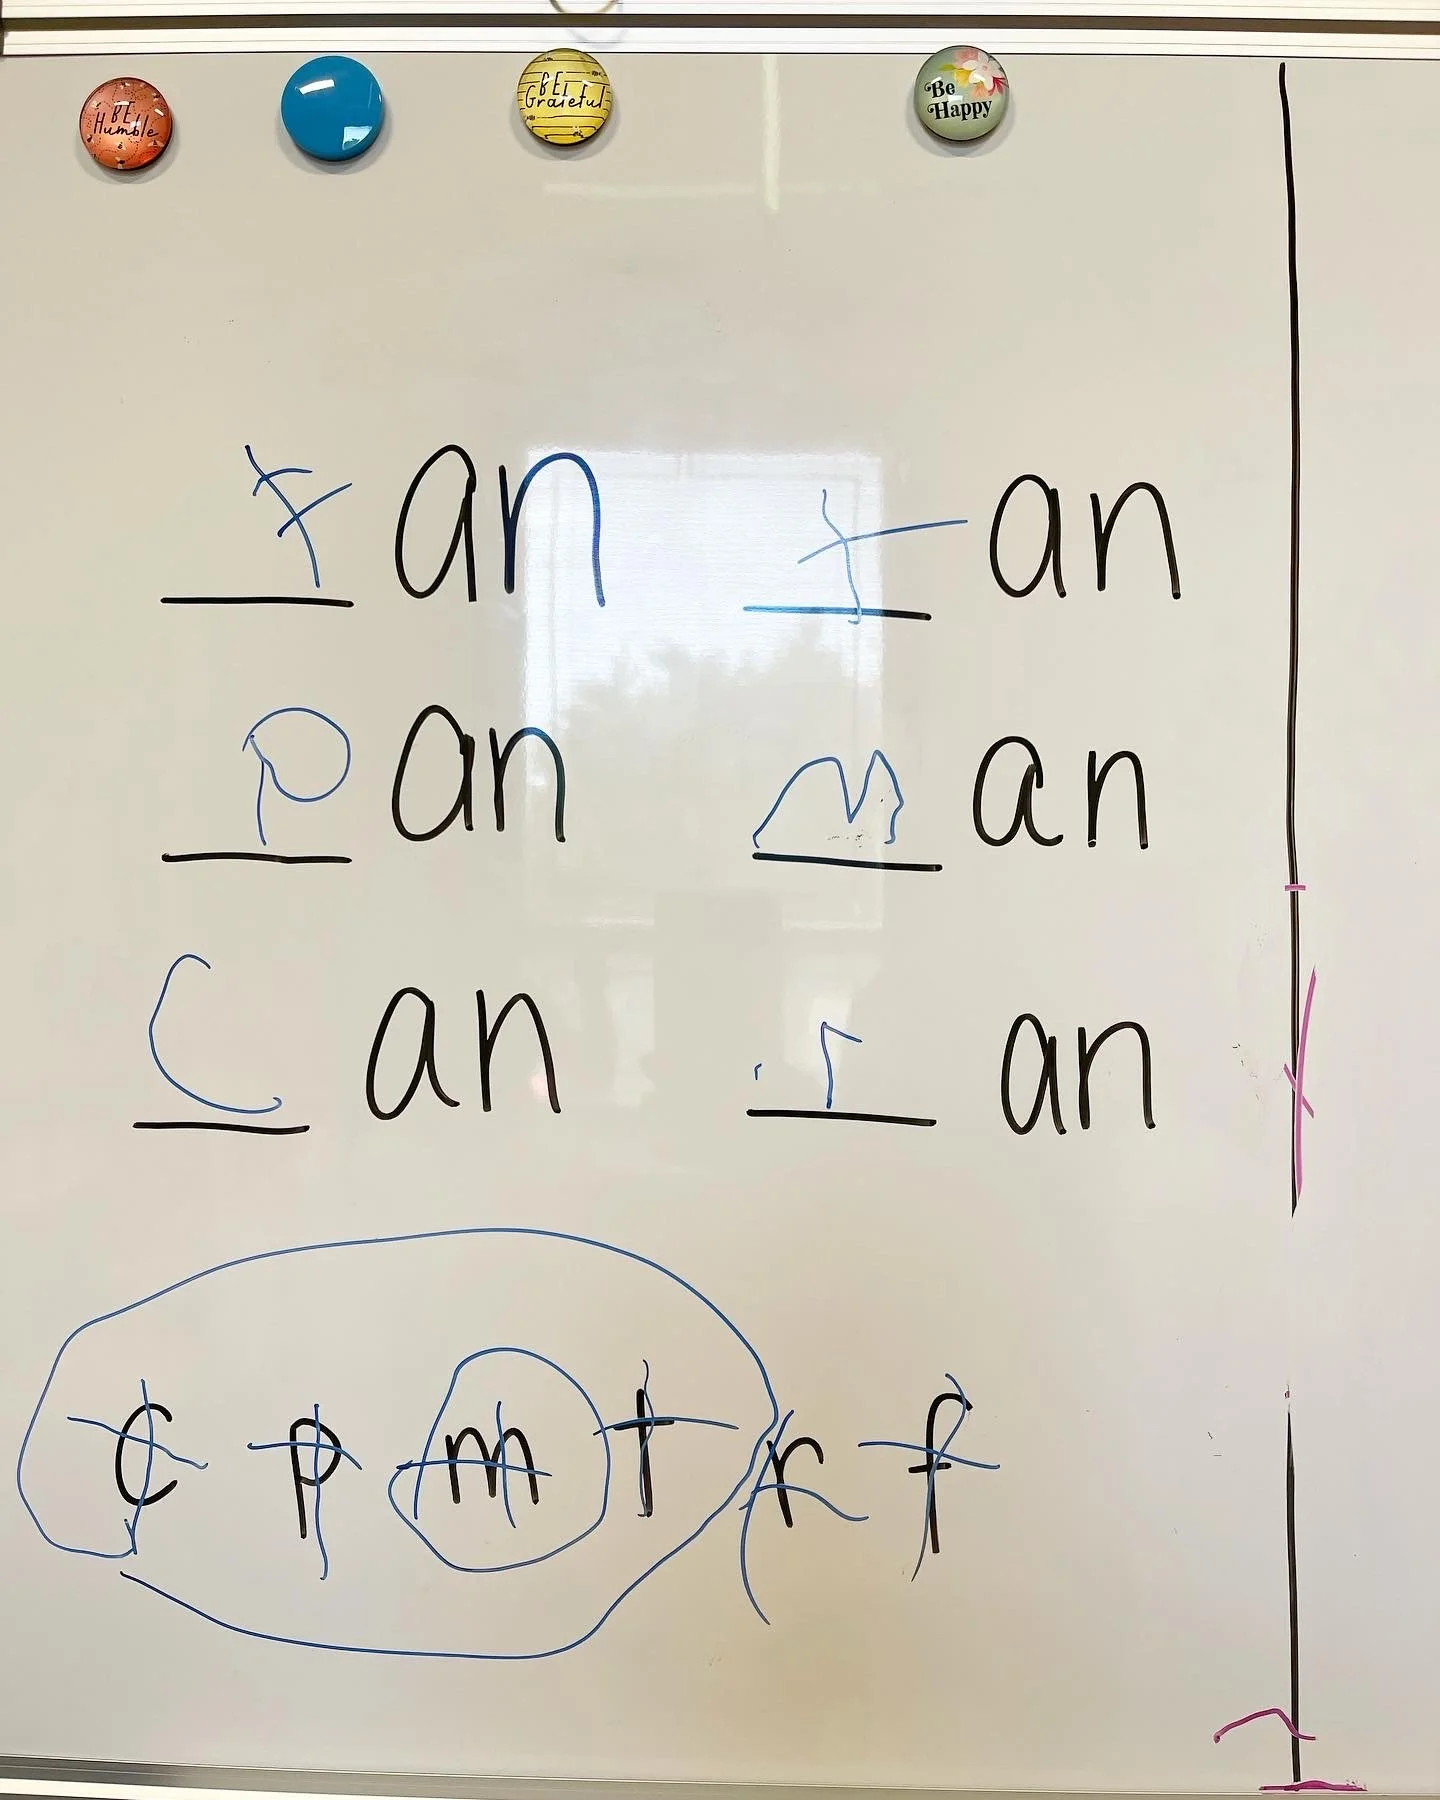 BE Humble BE Grateful Be Happy
fan tan
pan man
can ran
c p m t r f